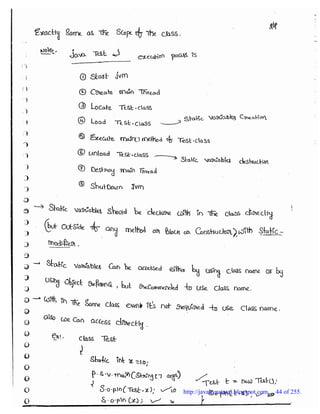 Exactly Same as The Scope of The class.
Note:- Java Test ↵ execution process is
① Start Jvm
② Create main Thread
③ Locate Test.class
④ Load Test.class → Static variables Creation
⑤ Execute main() method of Test.class
⑥ unload Test.class → Static variables destruction
⑦ Destroy main Thread
⑧ ShutDown Jvm
→ Static variables Should be declare with in The class directly
(but outside of any method or Block or Constructor) with Static
modifier.
→ Static variables Can be accessed either by using class name or by
using object reference, but recommended to use class name.
→ with in The Same class even It's not required to use Class name.
also we Can access directly.
Ex:- class Test
{
Static int x = 10;
P.S.V.main(String[] args)
{
Test t = new Test();
S.o.pln(Test.x); ✓ 10
S.o.pln(x); ✓
44 of 255.